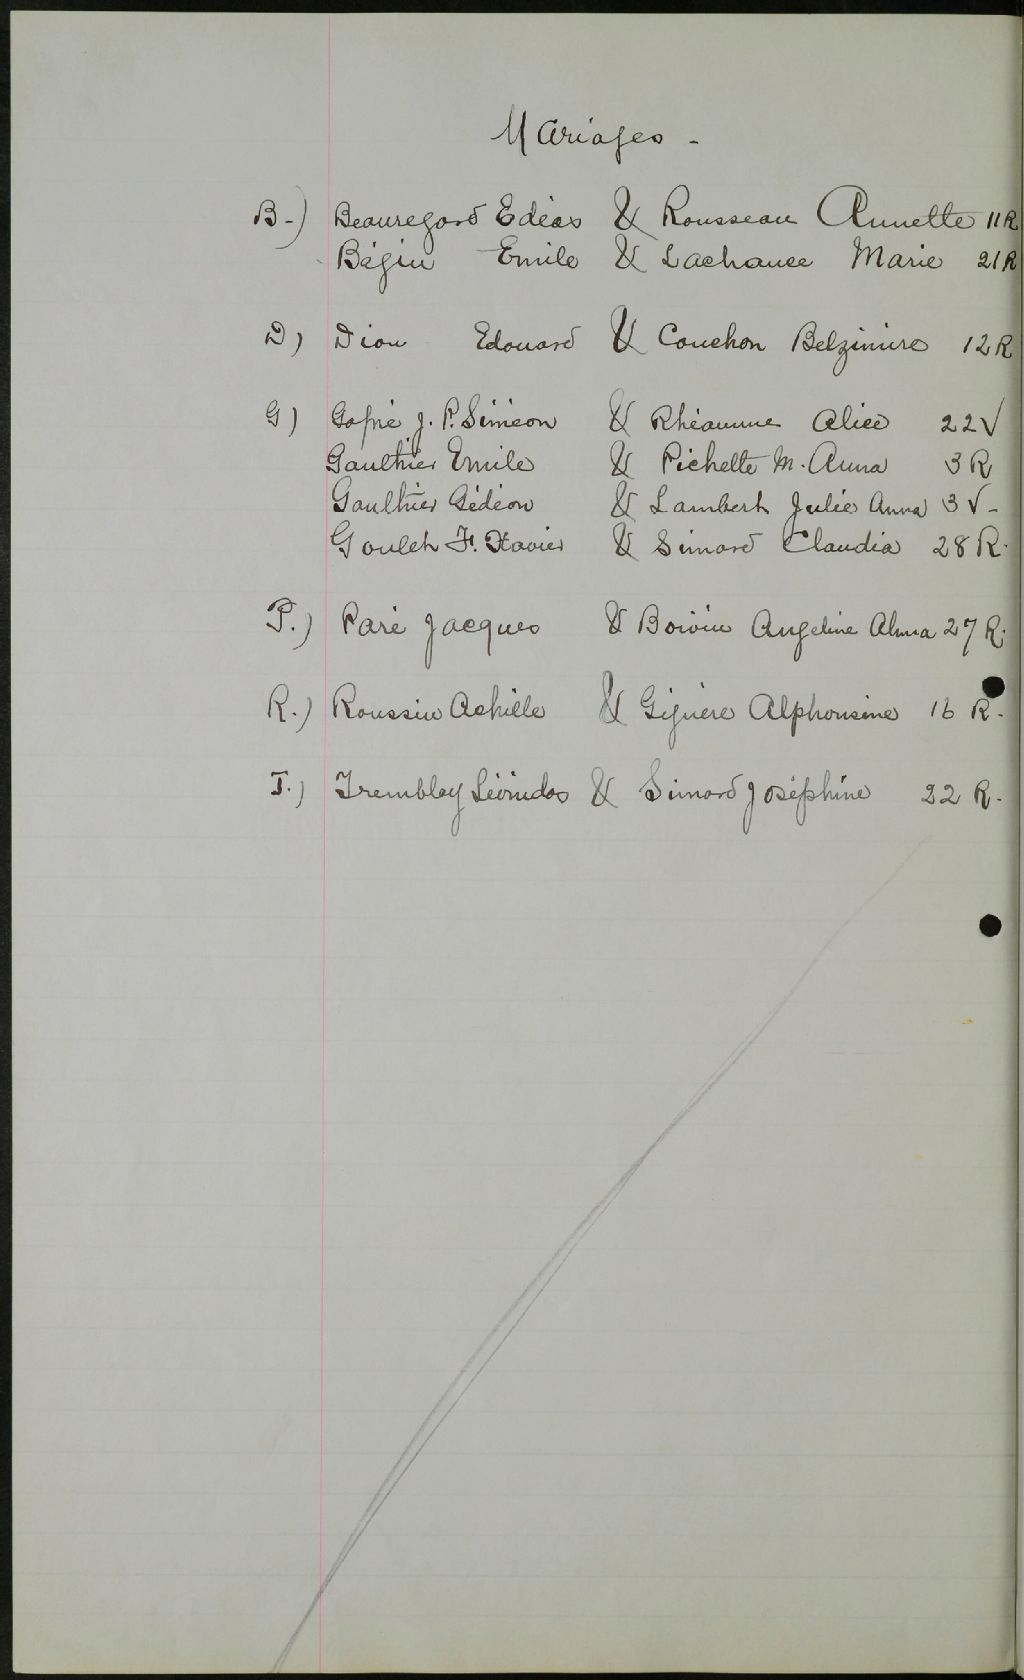 Mariages -
B-) Beauregard Edéas & Rousseau Annette 11R
Bégin Emile & Lachance Marie 21R
D) Dion Edouard & Couchon Belzimire 12R
G) J. P. Siméon & Rhéaume Alice 22V
Gauthier Emile & Pichette M. Anna 3R
Gaulthier Gédéon & Lambert Julie Anna 3V-
Goulet F. Xavier & Simard Claudia 28R.
P.) Paré Jacques & Boivin Angeline Alma 27R.
R.) Roussin Achille & Giguère Alphonsine 16 R.
T.) Tremblay Léonidas & Simard Joséphine 22 R.